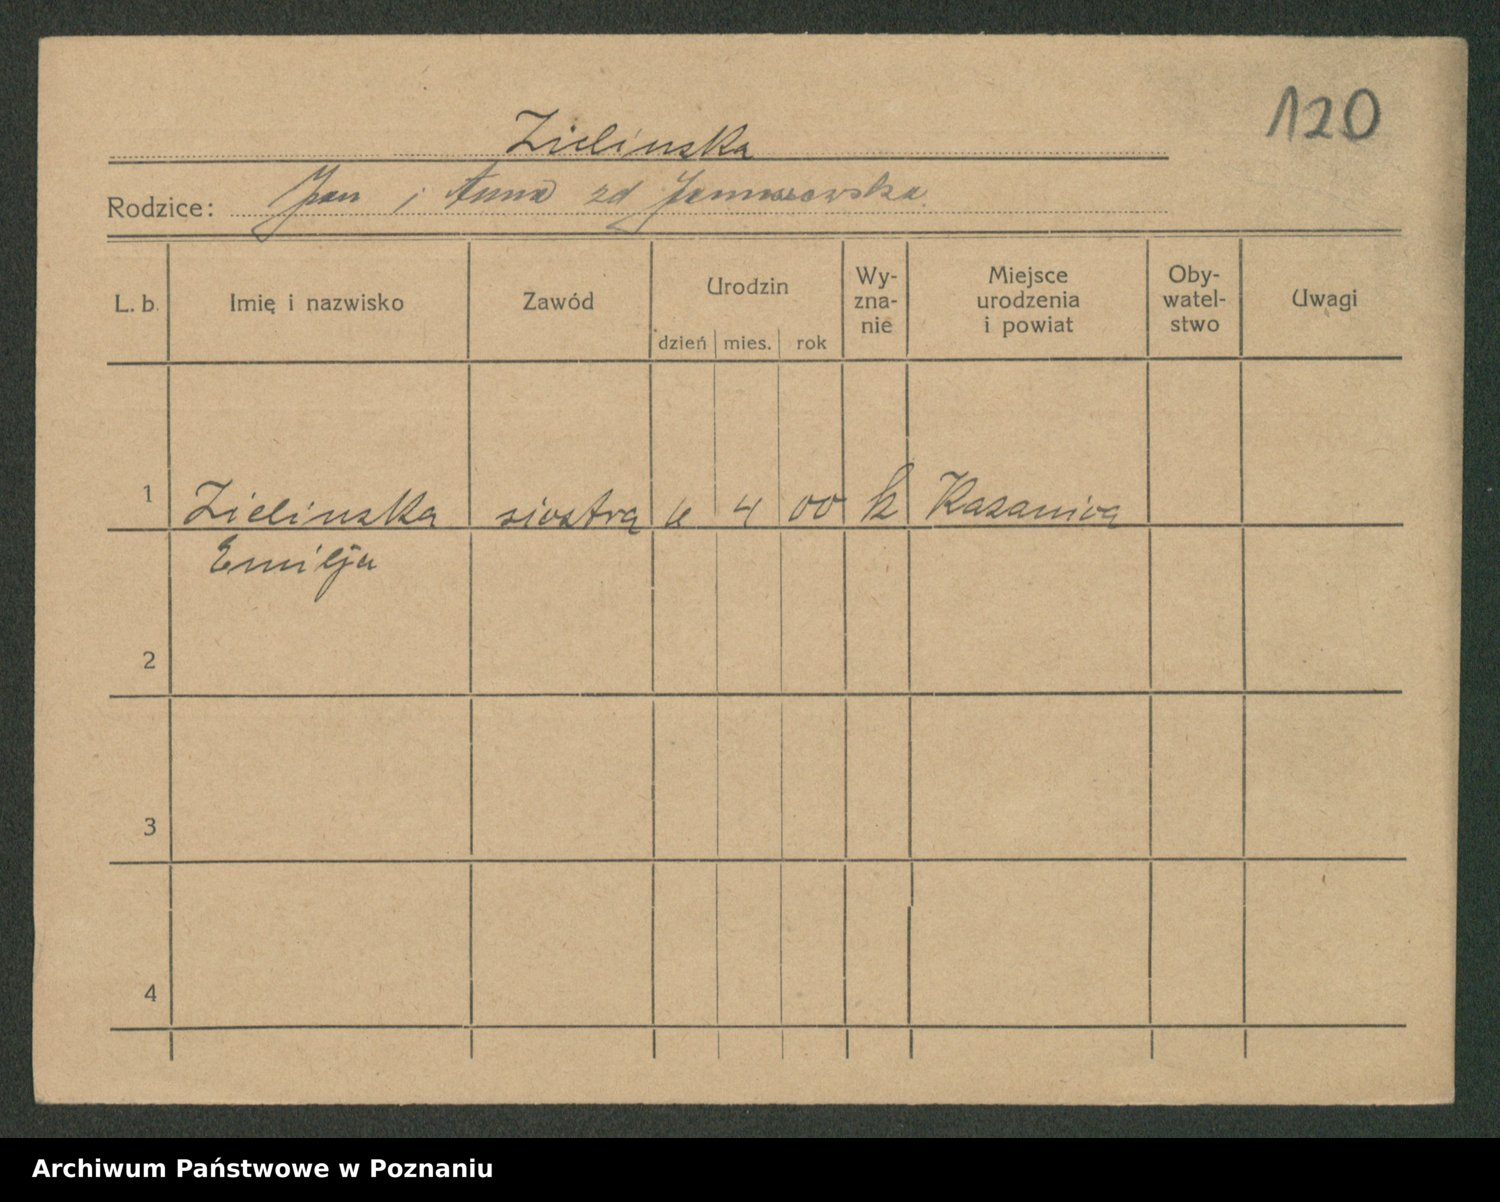 120
Zielinska
Rodzice: Jan i Anna zd Januszewska
L. b. Imię i nazwisko Zawód Urodzin Wy-zna-nie Miejsce urodzenia i powiat Oby-watel-stwo Uwagi
dzień mies. rok
1 Zielinska siostra 6 4 00 k Kazanica
Emilja
2
3
4
Archiwum Państwowe w Poznaniu